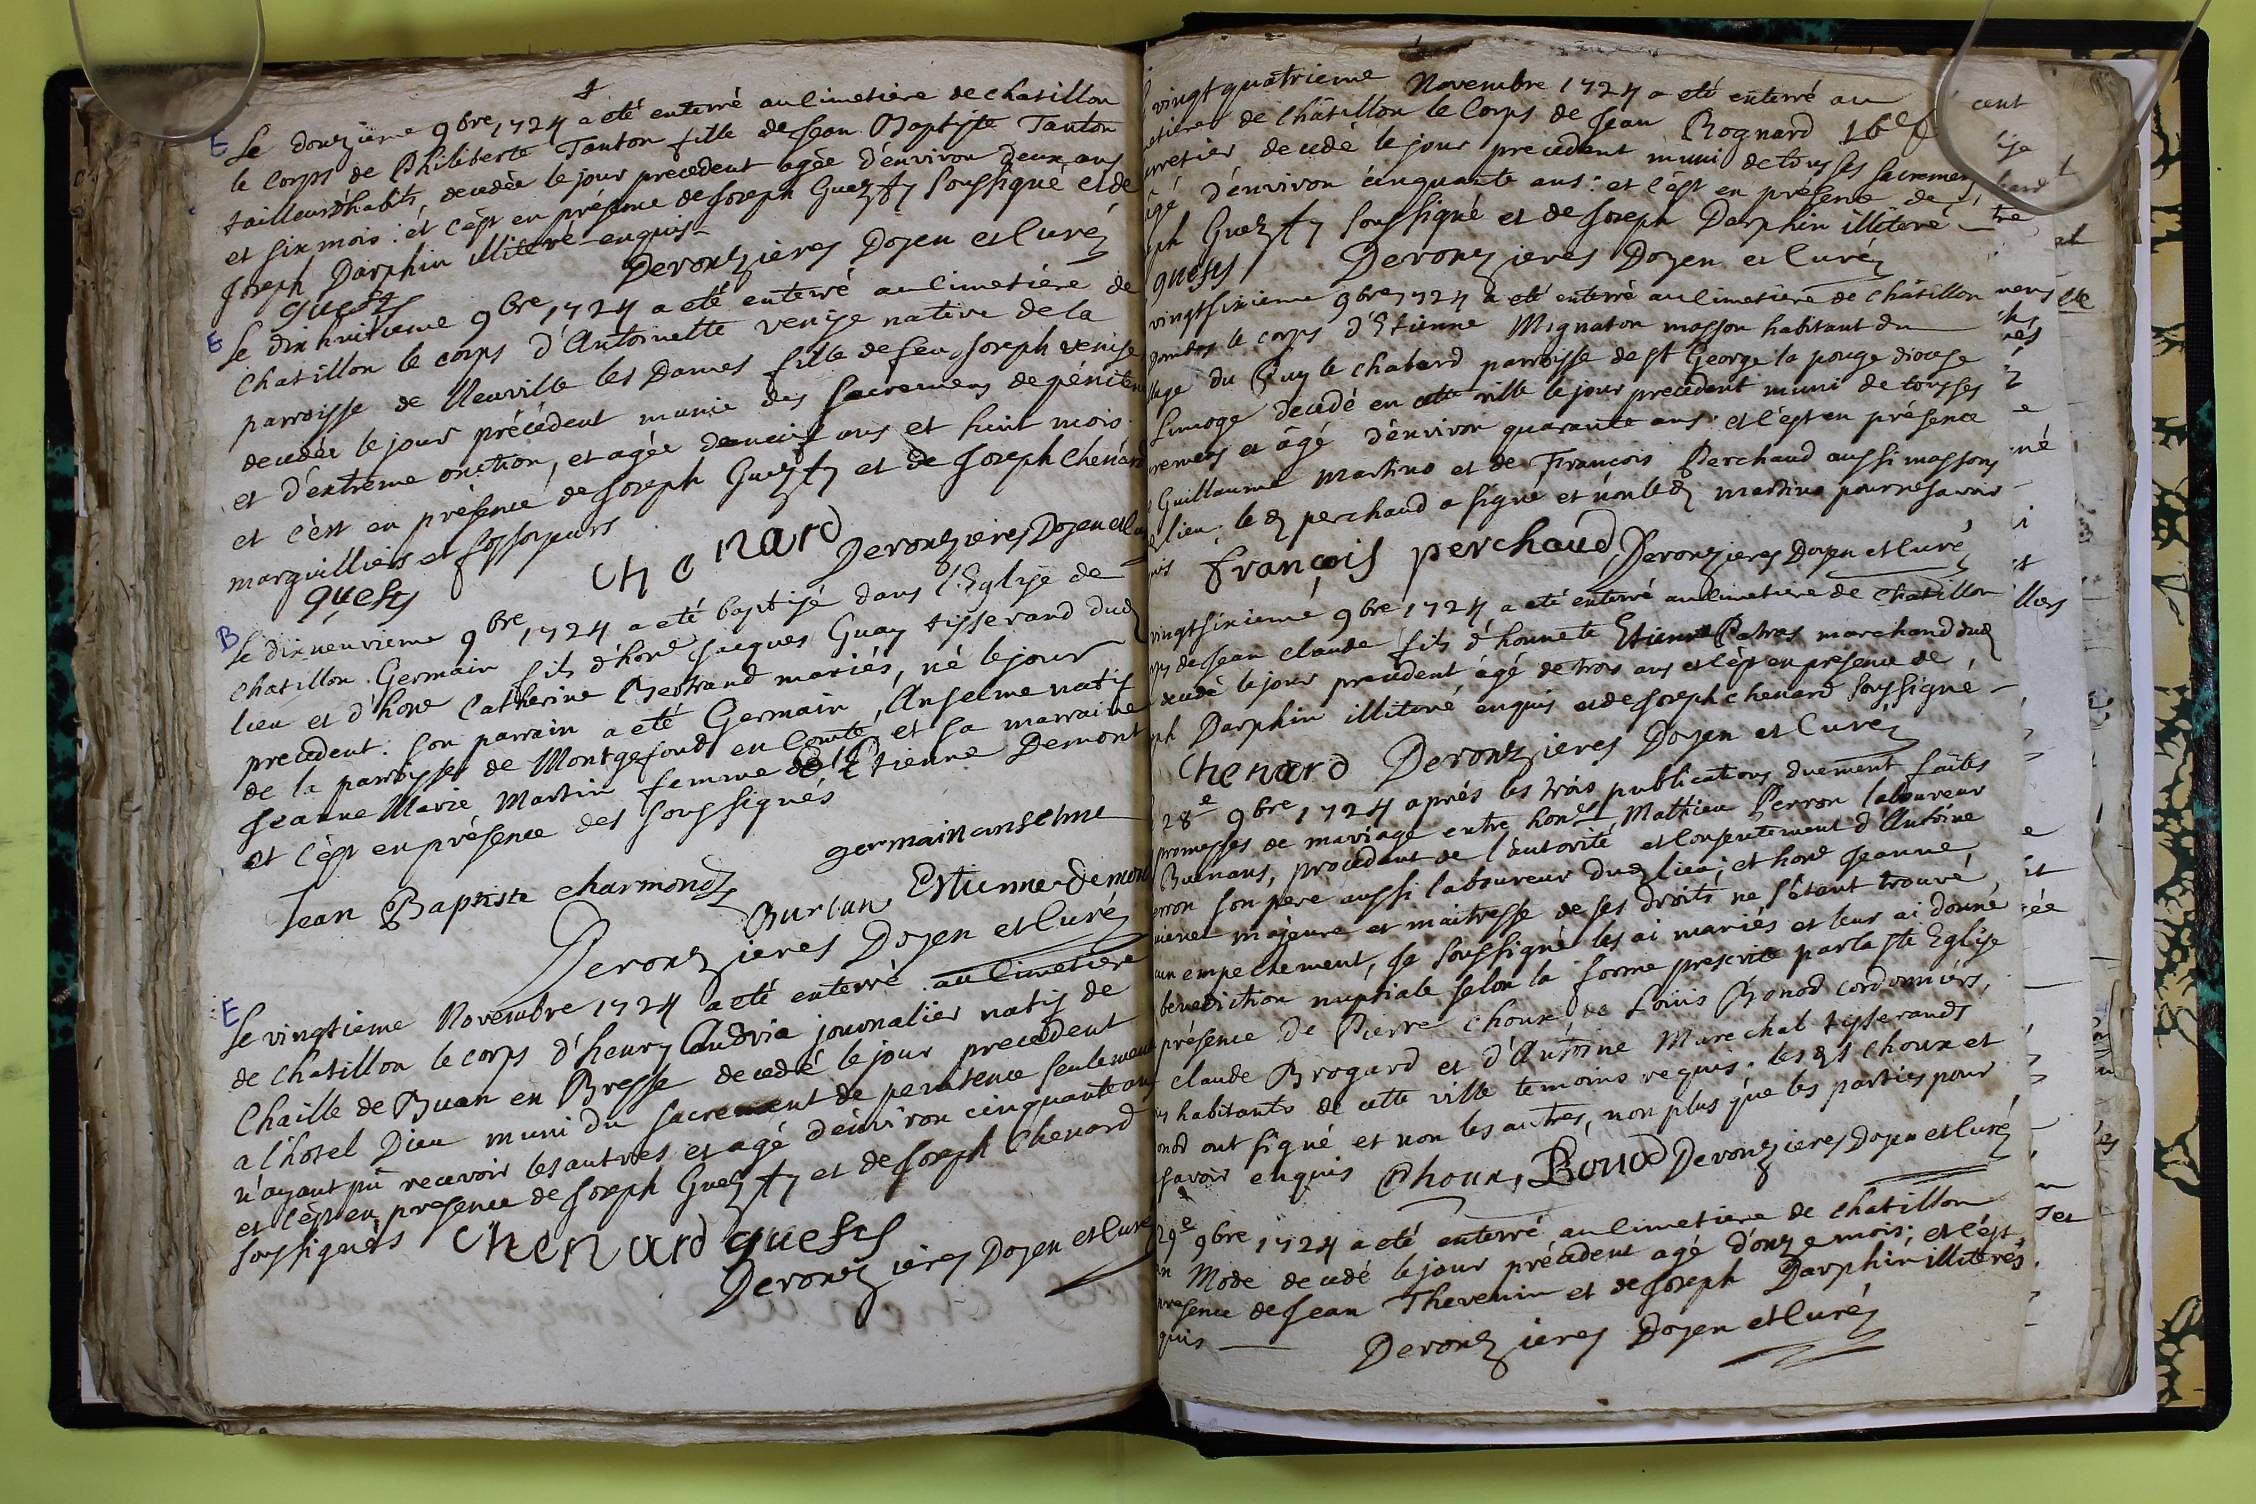 E Le douzième 9bre 1724 a été enterré au Cimetière de chatillon
le Corps de Philiberte Tanton fille de Jean Baptiste Tanton
tailleur d'habits, decedée le jour precedent agée d'environ deux ans
et six mois: et c'est en présence de Joseph Guez soussigné et de
Joseph Darphin illiteré enquis
guests Deronzieres Doyen et Curé
E Le dix huitieme 9bre 1724 a été enterré au Cimetière de
Chatillon le corps d'Antoinette venise native de la
parroisse de Neuville les Dames fille de feu Joseph venise
decedée le jour précédent munie des Sacremens de péniten
et d'extreme onction, et agée de neuf ans et huit mois
et c'est en présence de Joseph Guez et de Joseph Chenard
marguilliers et fossoyeurs
guests chenard Deronzieres Doyen et Cu
B Le dix neuvieme 9bre 1724 a été baptisé dans l'Eglise de
Chatillon Germain fils d'hone Jacques Guay tisserand dud
lieu et d'hone Catherine Bertrand mariés, né le jour
precedent. Son parrain a été Germain Anselme natif
de la parroisse de Montgefond en Comté, et sa marraine
Jeanne Marie Martin femme de Etienne Demont
et c'est en présence des soussignés
germain anselme
Jean Baptiste charmond Burlan Estienne demon
Deronzieres Doyen et Curé
E Le vingtieme Novembre 1724 a été enterré au Cimetière
de Chatillon le corps d'henry Caudvia journalier natif de
Chaille de Buan en Bresse decedé le jour precedent
a l'hotel Dieu muni du sacrement de penitence seulement
n'ayant pû recevoir les autres et agé d'environ cinquante ans
et c'est en presence de Joseph Guez et de Joseph Chenard
soussignés chenard guests
Deronzieres Doyen et Curé
vingt quatrieme Novembre 1724 a été enterré au
metiere de Châtillon le Corps de Jean Rognard
decedé le jour precedent muni de tous ses sacremens
agé d'environ cinquante ans: et c'est en présence de
ph Guez soussigné et de Joseph Darphin illiteré
guests Deronzieres Doyen et Curé
vingtsixieme 9bre 1724 a été enterré au Cimetiere de Châtillon
le corps d'Etienne Mignaton masson habitant du
lage du Puy le chabard parroisse de St George la pouge diocese
Limoge decedé en cette ville le jour precedent muni de tous ses
cremens et âgé d'environ quarante ans: et c'est en présence
Guillaume Martino et de François Perchaud aussi massons
lieu; le d perchaud a signé et non led martino pour ne savoir
uis françois perchaud Deronzieres Doyen et Curé
vingtsixieme 9bre 1724 a été enterré au Cimetiere de Chatillon
ps de Jean Claude fils d'honnete Etienne Patras marchand dud
decedé le jour precedent agé de trois ans et c'est en présence de
ph Darphin illiteré enquis et de Joseph chenard soussigné
Chenard Deronzieres Doyen et Curé
28e 9bre 1724 aprés les trois publications duement faites
promesses de mariage entre honetes Mathieu Perron laboureur
Buenans, procedant de l'autorité et consentement d'Antoine
erron son pere aussi laboureur dud lieu; et hone Jeanne
majeure et maitresse de ses droits ne s'étant trouvé
un empechement, Je soussigné les ai mariés et leur ai donné
benediction nuptiale selon la forme prescrite par la ste Eglise
présence de Pierre Choux de Louis Bonod cordonniers,
claude Brogard et d'Antoine Marechal tisserands
habitants de cette ville temoins requis. lesds Choux et
onod ont signé et non les autres, non plus que les parties pour
savoir enquis Choux, Bonod Deronzieres Doyen et Curé
29e 9bre 1724 a été enterré au Cimetiere de Chatillon
Mode decedé le jour précedent agé d'onze mois; et c'est
presence de Jean Thevenin et de Joseph Darphin illiterés
quis Deronzieres Doyen et Curé